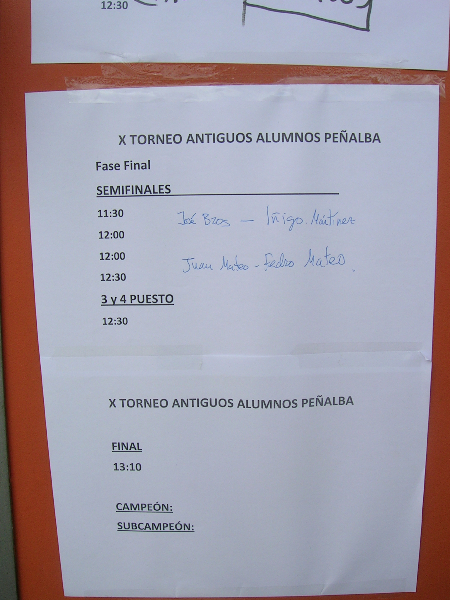 12:30
X TORNEO ANTIGUOS ALUMNOS PEÑALBA
Fase Final
SEMIFINALES
11:30 José Bros - Iñigo Martínez
12:00
12:00 Juan Mateo - Pedro Mateo
12:30
3 y 4 PUESTO
12:30
X TORNEO ANTIGUOS ALUMNOS PEÑALBA
FINAL
13:10
CAMPEÓN:
SUBCAMPEÓN: